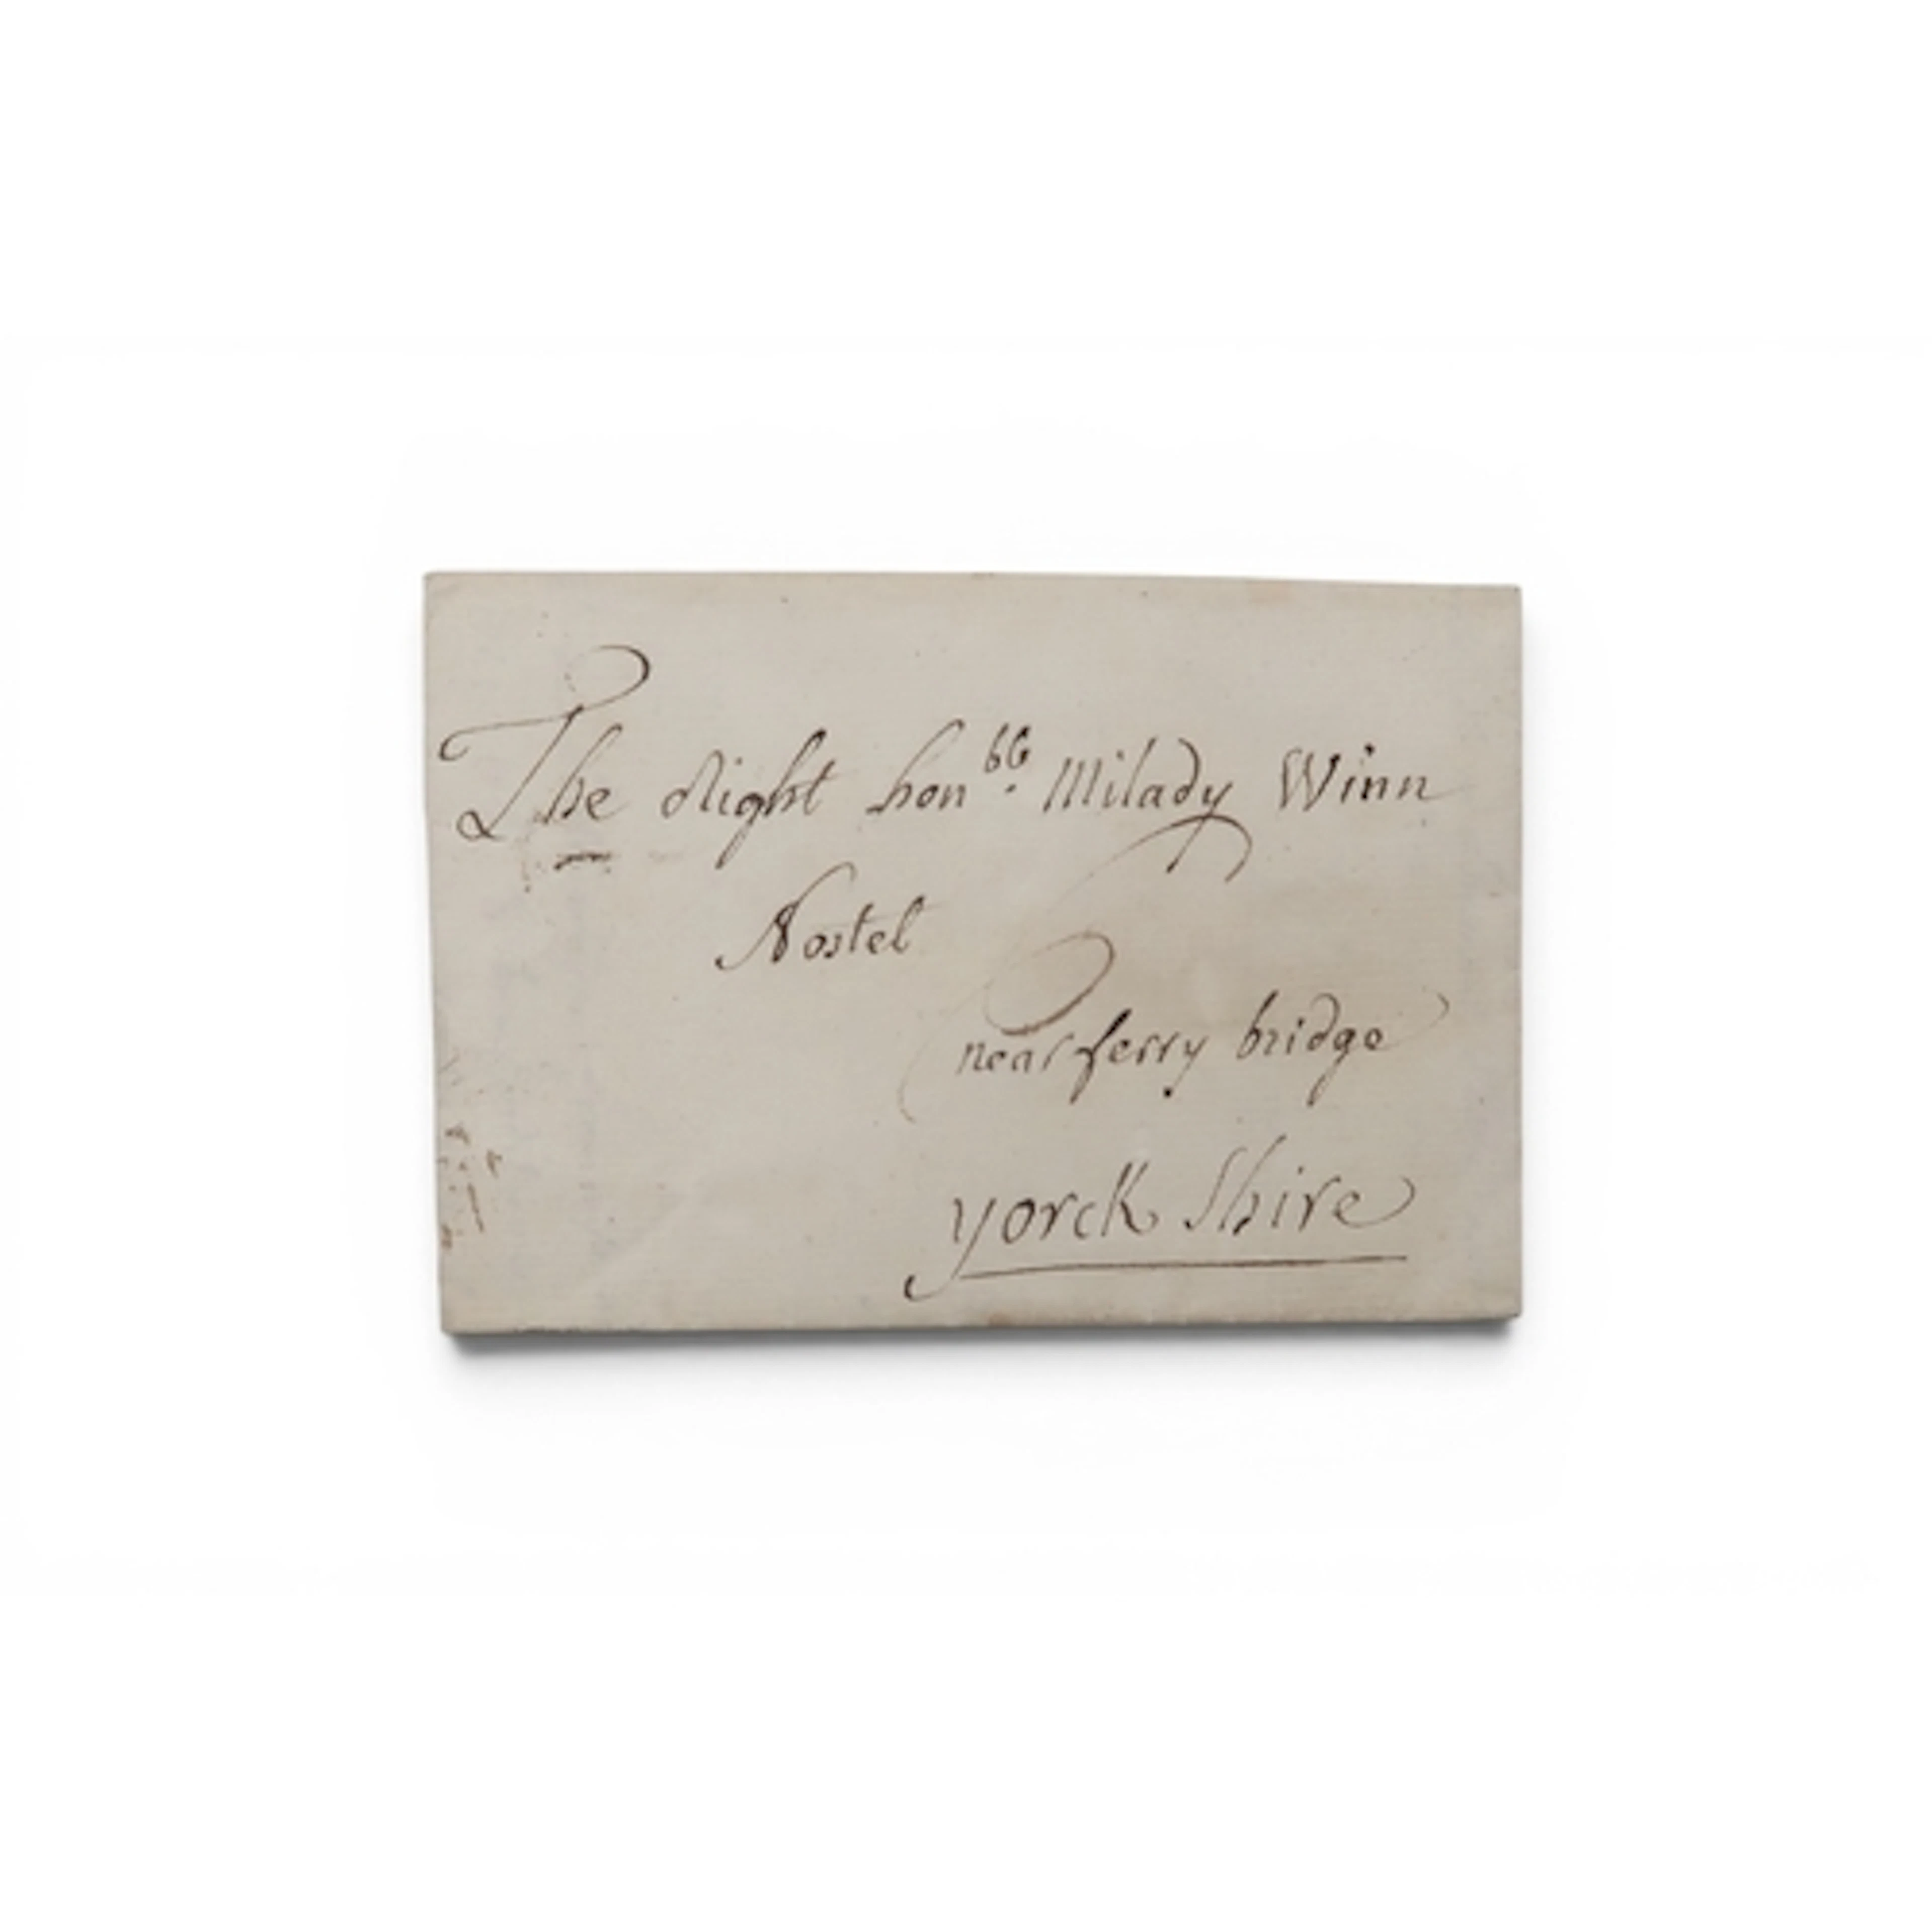 The Right hon.ble Milady Winn
Nostel
near ferry bridge
yorck Shire